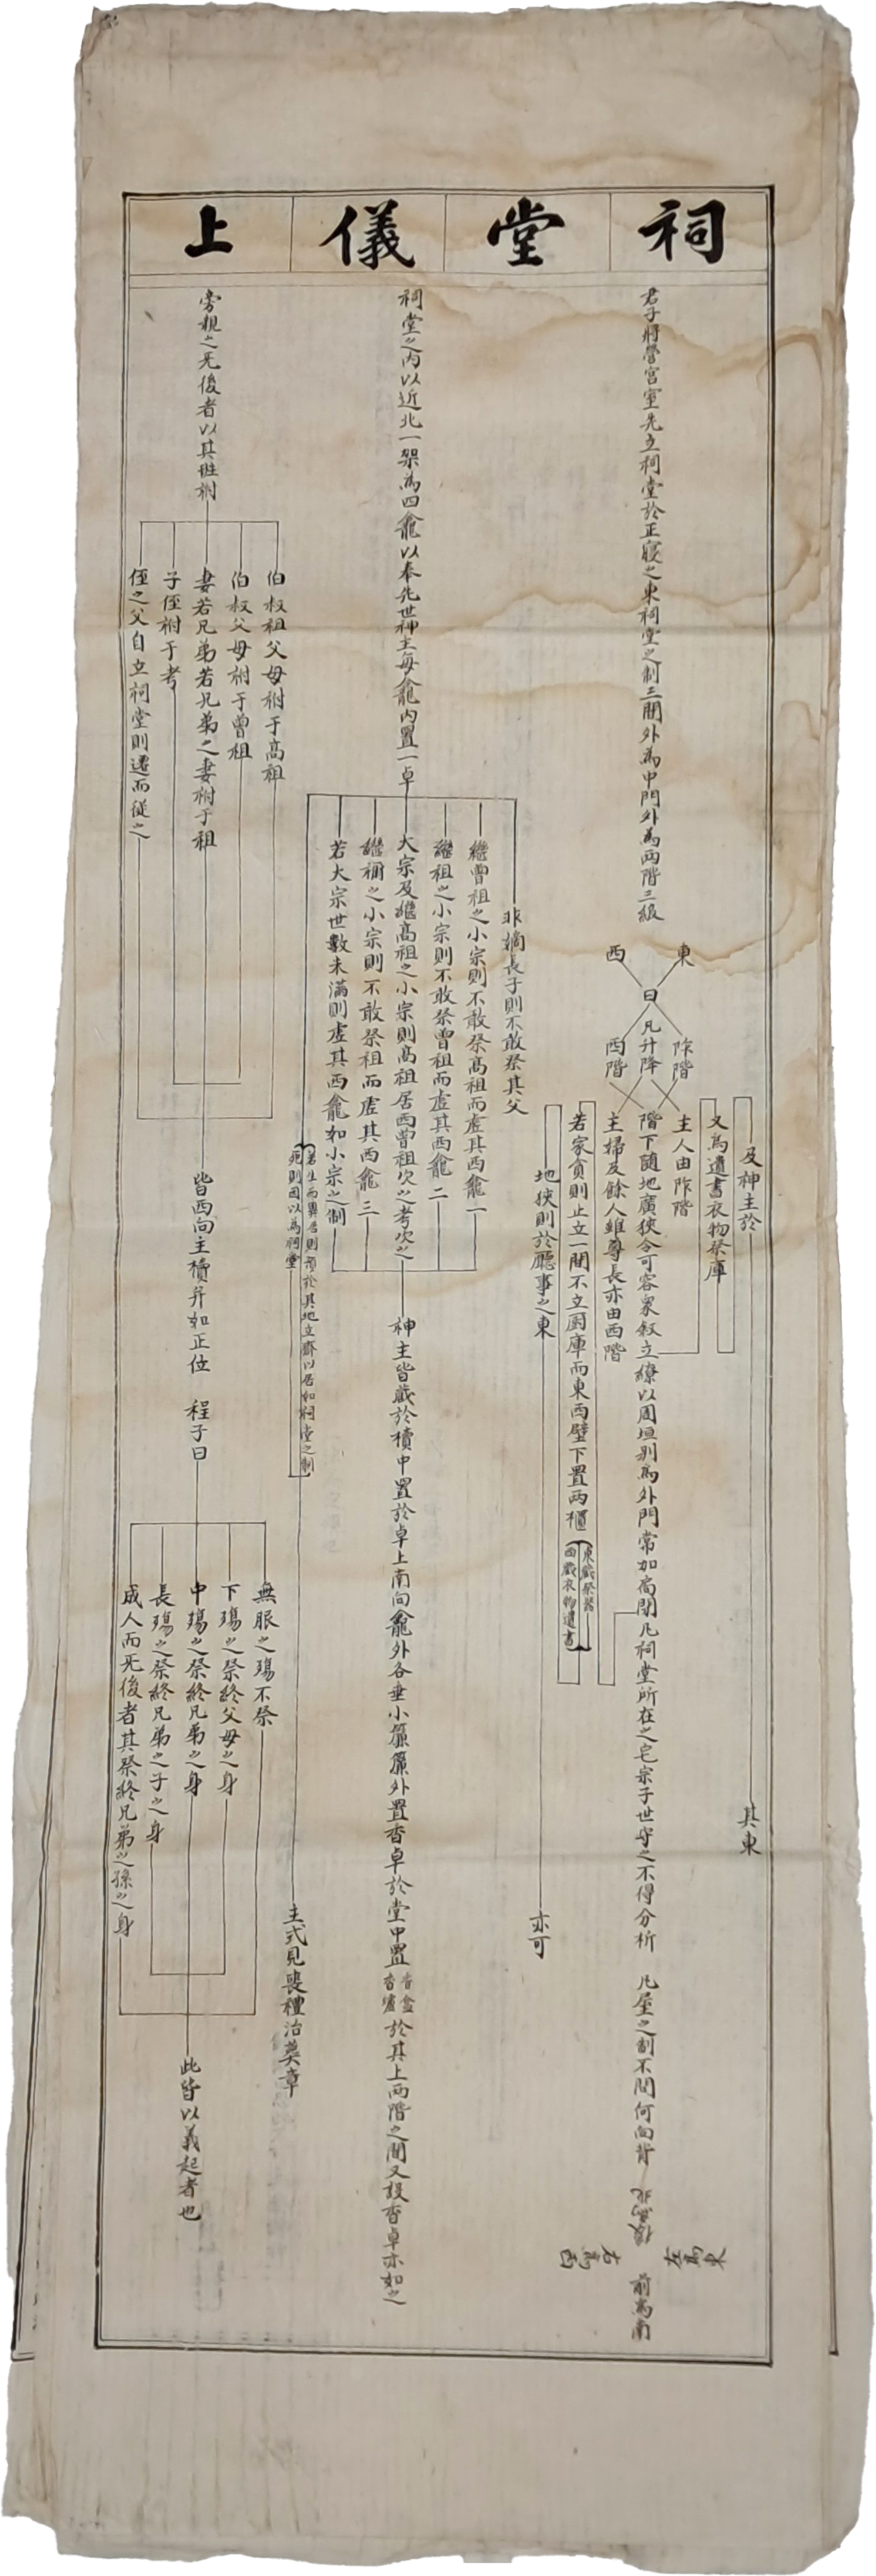 祠堂儀上
君子將營宮室先立祠堂於正寢之東祠堂之制三間外為中門外為兩階三級
東
西
曰
凡升降
阼階
西階
主人由阼階
主婦及餘人雖尊長亦由西階
階下隨地廣狹令可容衆叙立繚以周垣別為外門常加扃閉凡祠堂所在之宅宗子世守之不得分析
凡屋之制不問何向背
前為南
後為北
左為東
右為西
又為遺書衣物祭庫
及神主於
其東
若家貧則止立一間不立厨庫而東西壁下置兩櫃
東藏祭器
西藏衣物遺書
地狹則於廳事之東
亦可
祠堂之內以近北一架為四龕以奉先世神主每龕內置一卓
非嫡長子則不敢祭其父
繼曾祖之小宗則不敢祭高祖而虛其西龕一
繼祖之小宗則不敢祭曾祖而虛其西龕二
大宗及繼高祖之小宗則高祖居西曾祖次之考次之
繼禰之小宗則不敢祭祖而虛其西龕三
若大宗世數未滿則虛其西龕如小宗之制
若生而異居則預於其地立齋以居如祠堂之制
死則因以為祠堂
神主皆藏於櫝中置於卓上南向龕外各垂小簾簾外置香卓於堂中置
香盒
香爐
於其上兩階之間又設香卓亦如之
主式見喪禮治葬章
旁親之无後者以其班祔
伯叔祖父母祔于高祖
伯叔父母祔于曾祖
妻若兄弟若兄弟之妻祔于祖
子侄祔于考
侄之父自立祠堂則遷而從之
皆西向主櫝并如正位
程子曰
無服之殤不祭
下殤之祭終父母之身
中殤之祭終兄弟之身
長殤之祭終兄弟之子之身
成人而无後者其祭終兄弟之孫之身
此皆以義起者也